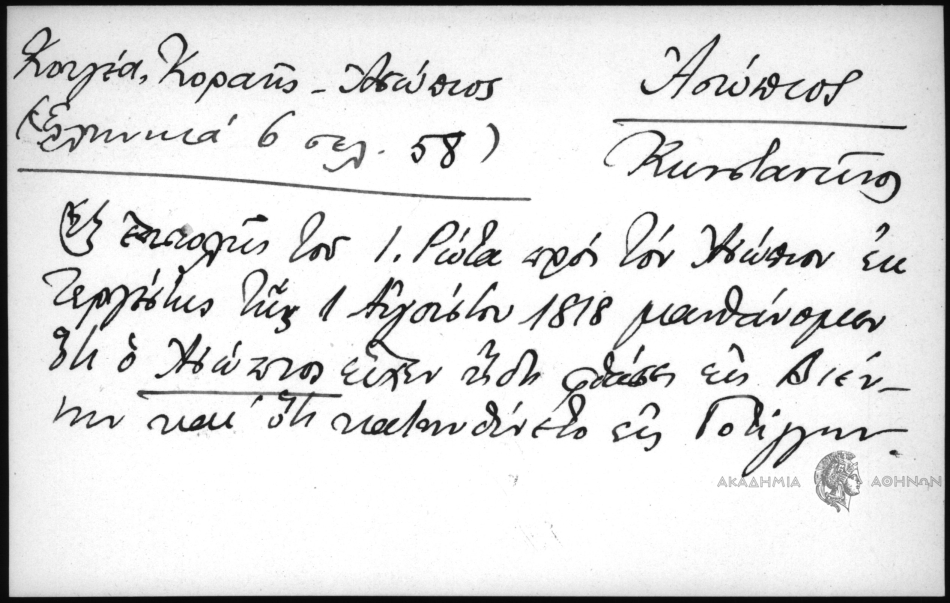 Κουγέα, Κοραῆς - Ἀσώπιος
(Ἑλληνικά 6 σελ. 58)
Ἀσώπιος
Κωνσταντῖνος
Ἐξ ἐπιστολῆς τοῦ Ι. Ρώτα πρός τόν Ἀσώπιον ἐκ
Τεργέστης τῆς 1 Αὐγούστου 1818 μανθάνομεν
ὅτι ὁ Ἀσώπιος εἶχεν ἤδη φθάσει εἰς Βιέν-
νην καί ὅτι κατηυθύνετο εἰς Γοτίγγην.
ΑΚΑΔΗΜΙΑ ΑΘΗΝΩΝ